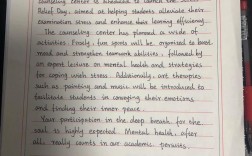 counseling center is intended to launch the
Relief Day, aimed at helping students alleviate their
examination stress and enhance their learning efficiency.
The counseling center has planned a wide of
activities. Firstly, fun sports will be organized to boost
mood and strengthen teamwork abilities, followed by
an expert lecture on mental health and strategies
for coping with stress. Additionally, art therapies
such as painting and music will be introduced to
facilitate students in conveying their emotions
and finding their inner peace.
Your participation in the deep breath for the
soul is highly expected. Mental health, after
all, really counts in our academic pursuits.